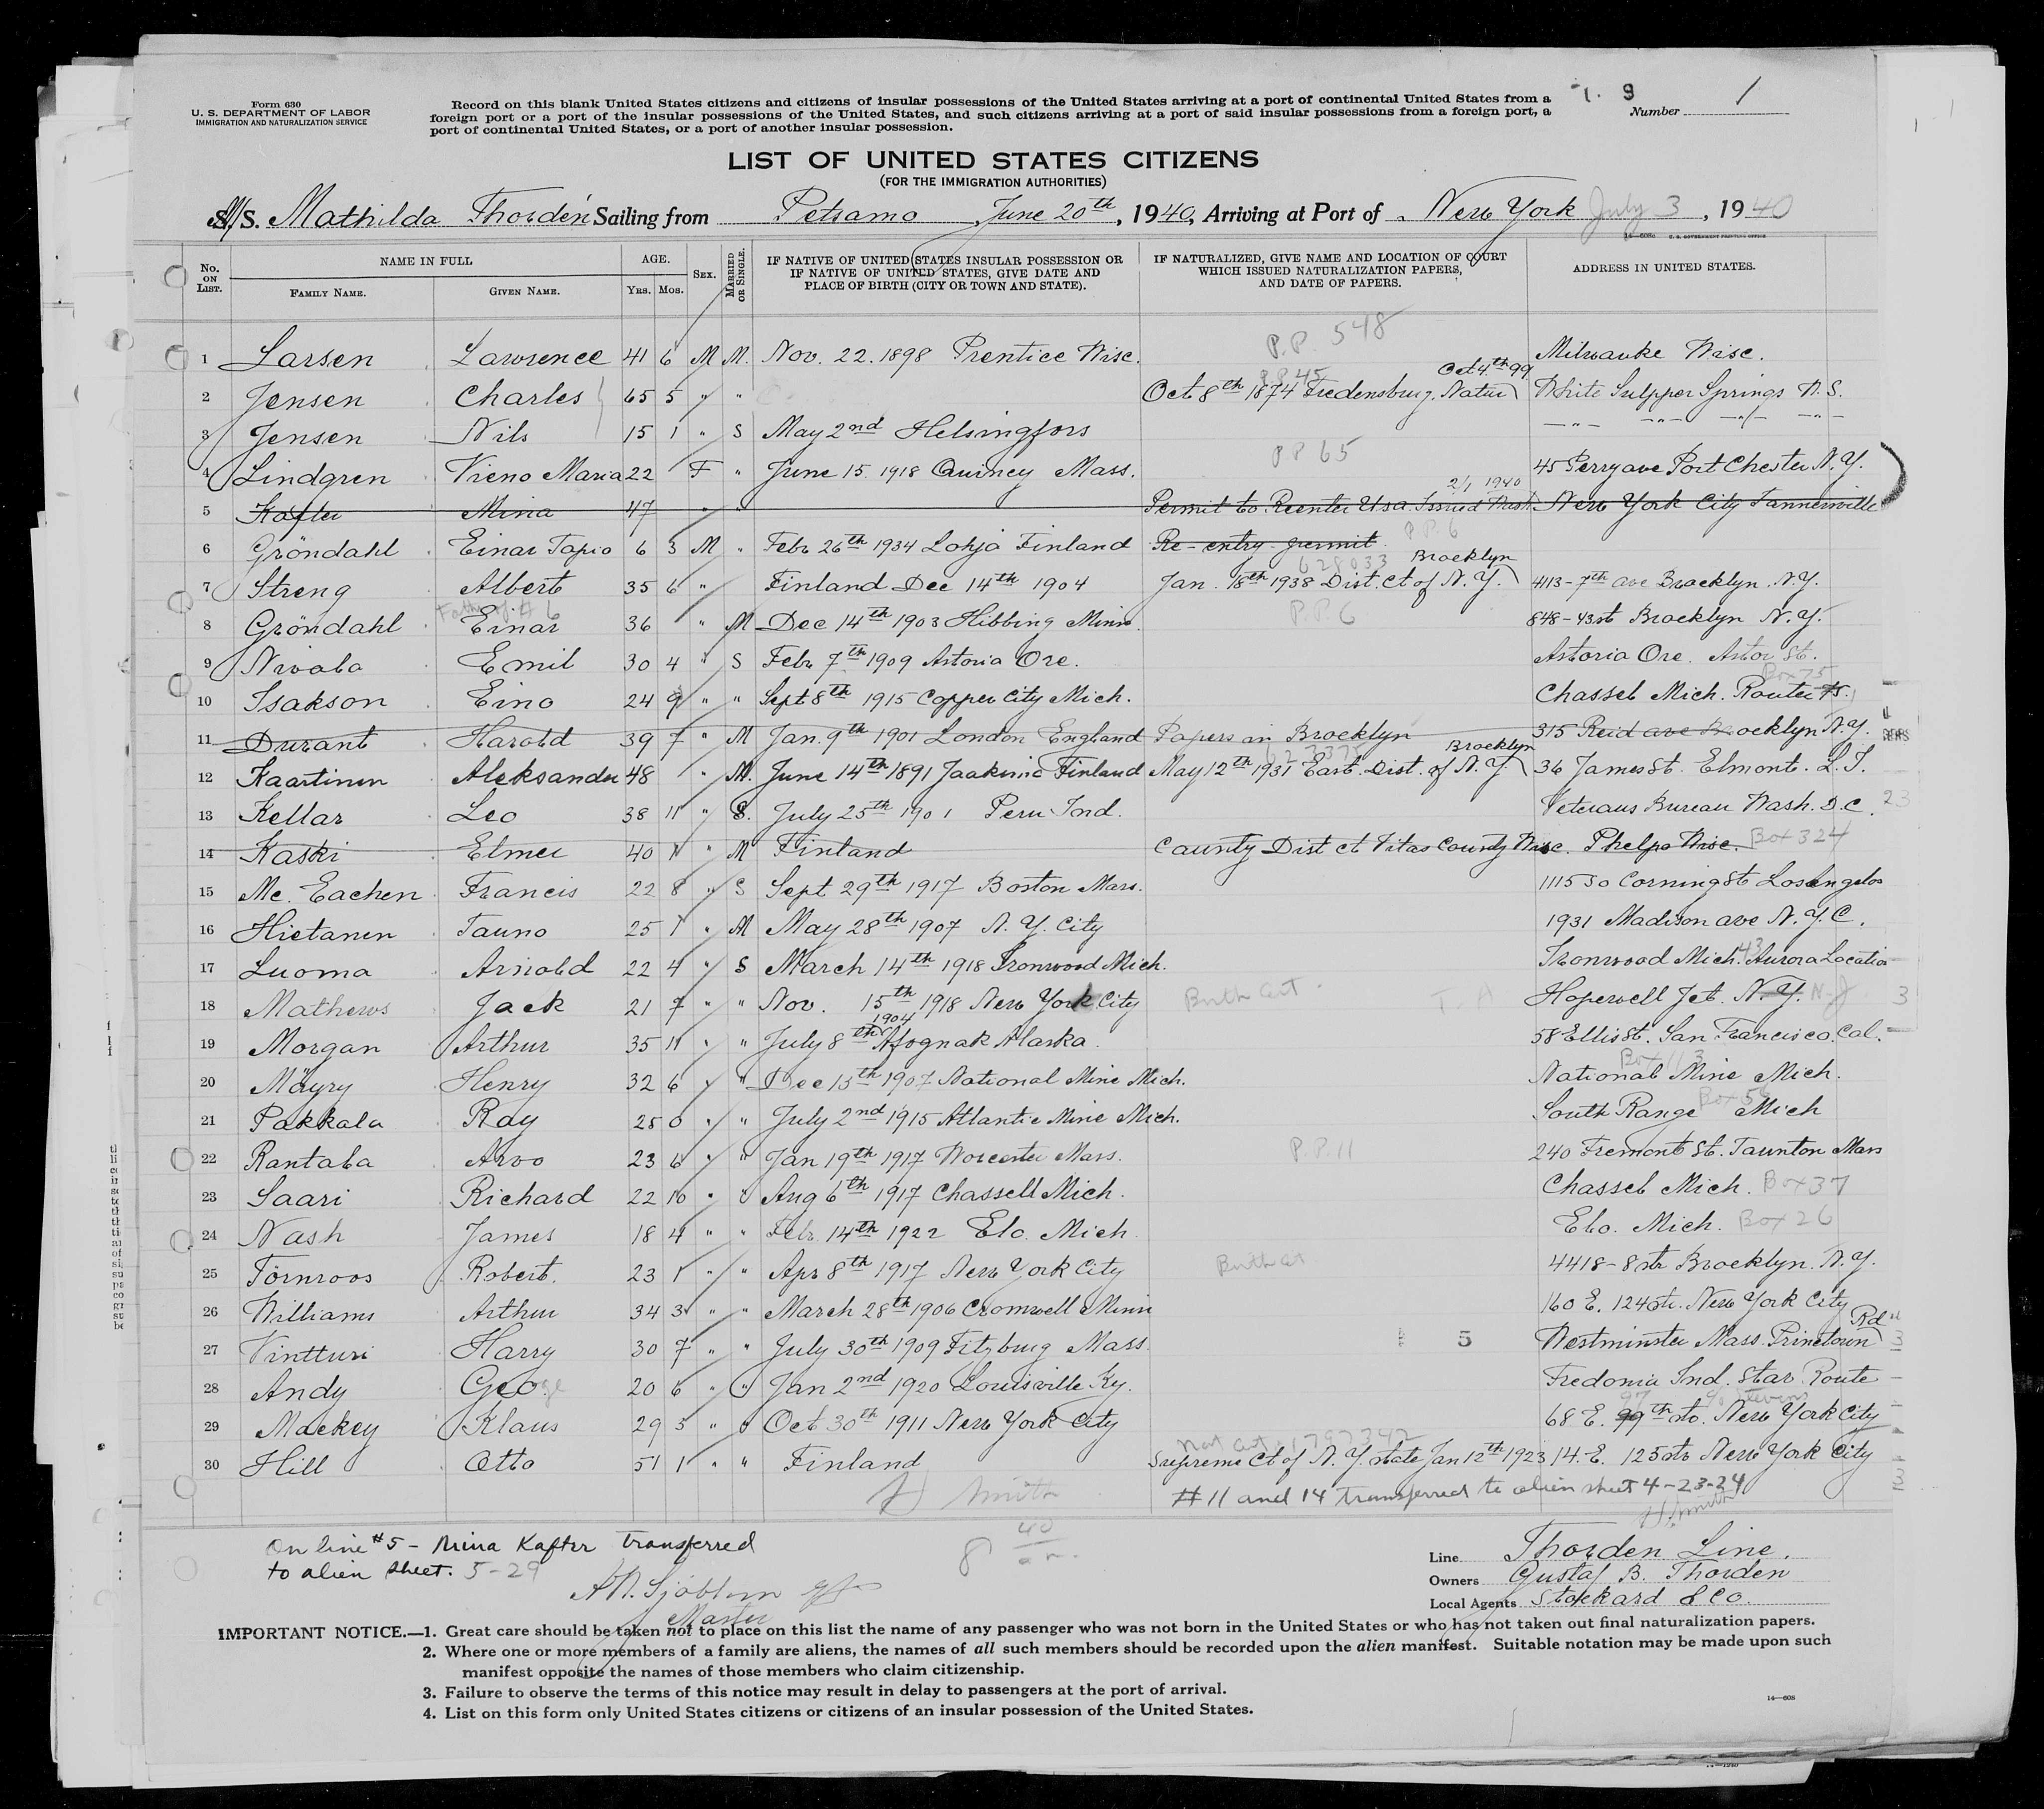 Form 630
U. S. DEPARTMENT OF LABOR
IMMIGRATION AND NATURALIZATION SERVICE
Record on this blank United States citizens and citizens of insular possessions of the United States arriving at a port of continental United States from a
foreign port or a port of the insular possessions of the United States, and such citizens arriving at a port of said insular possessions from a foreign port, a
port of continental United States, or a port of another insular possession.
Number 1
LIST OF UNITED STATES CITIZENS
(FOR THE IMMIGRATION AUTHORITIES)
M/S. Mathilda Thordén Sailing from Petsamo June 20th, 1940, Arriving at Port of New York July 3, 1940
No. ON LIST. NAME IN FULL FAMILY NAME. GIVEN NAME. AGE. YRS. MOS. SEX. MARRIED OR SINGLE. IF NATIVE OF UNITED STATES INSULAR POSSESSION OR IF NATIVE OF UNITED STATES, GIVE DATE AND PLACE OF BIRTH (CITY OR TOWN AND STATE). IF NATURALIZED, GIVE NAME AND LOCATION OF COURT WHICH ISSUED NATURALIZATION PAPERS, AND DATE OF PAPERS. ADDRESS IN UNITED STATES.
1 Larsen Lawrence 41 6 M M. Nov. 22. 1898 Prentice Wisc. P.P. 548 Milwauke Wisc.
2 Jensen Charles 65 5 " " Oct 8th 1874 Fredensburg. Natur Oct 4th 99 White Sulpper Springs N.S.
3 Jensen Nils 15 1 " S May 2nd Helsingfors
4 Lindgren Vieno Maria 22 F " June 15. 1918 Quincy Mass. PP 65 45 Perry ave Port Chester N.Y.
5 Kafter Mina 47 " Permit to Reenter Usa Issued Wash 2/1 1940 New York City Tannersville
6 Gröndahl Einar Tapio 6 3 M " Febr 26th 1934 Lohja Finland Re-entry permit P.P. 6
7 Streng Albert 35 6 " Finland Dec 14th 1904 628033 Jan. 18th 1938 Dist. Ct of N.Y. Brocklyn 4113-7th ave Brocklyn N.Y.
8 Gröndahl Father of # 6 Einar 36 " M Dec 14th 1903 Hibbing Minn. P.P. 6 848-43st Brocklyn N.Y.
9 Nivala Emil 30 4 " S Febr 7th 1909 Astoria Ore. Astoria Ore. Astor St.
10 Isakson Eino 24 9 " " Sept 8th 1915 Copper City Mich. Chassel Mich. Route Box 75
11 Durant Harold 39 7 " M Jan. 9th 1901 London England Papers in Brocklyn 315 Reid ave Brocklyn N.Y.
12 Kaartinen Aleksander 48 " M. June 14th 1891 Jaakima Finland May 12th 1931 East. Dist. of N.Y. Brocklyn 36 James St. Elmont. L.I.
13 Kellar Leo 38 11 " S. July 25th 1901 Peru Ind. Veterans Bureau Wash. D.C.
14 Kaski Elmer 40 11 " M Finland County Dist ct Vilas County Wisc. Phelps Wisc. Box 324
15 Mc. Eachen Francis 22 8 " S Sept 29th 1917 Boston Mass. 1115 So Corning St Losangelos
16 Hietanen Tauno 25 1 " M May 28th 1907 N.Y. City 1931 Madison ave N.Y.C.
17 Luoma Arnold 22 4 " S March 14th 1918 Ironwood Mich. Ironwood Mich. 43 Aurora Location
18 Mathews Jack 21 7 " " Nov. 15th 1918 New York City Birth Cert. T. A Hopewell Jct. N.Y. N.J.
19 Morgan Arthur 35 11 " " July 8th 1904 Afognak Alaska. 58 Ellis St. San Francisco. Cal.
20 Mäyry Henry 32 6 " " Dec 15th 1907 National Mine Mich. Box 113 National Mine Mich.
21 Pakkala Ray 25 0 " " July 2nd 1915 Atlantic Mine Mich. South Range Mich
22 Rantala Arvo 23 6 " " Jan 19th 1917 Worcester Mass. P.P. 11 240 Fremont St. Taunton Mass
23 Saari Richard 22 10 " " Aug 6th 1917 Chassell Mich. Chassel Mich. Box 37
24 Nash James 18 4 " " Febr. 14th 1922 Elo. Mich Elo. Mich. Box 26
25 Törnroos Robert. 23 1 " " Apr 8th 1917 New York City Birth Ct 4418-8 str Brocklyn. N.Y.
26 Williams Arthur 34 3 " " March 28th 1906 Cromwell Minn 160 E. 124 str. New York City
27 Vintturi Harry 30 7 " " July 30th 1909 Fitzburg Mass. 5 Westminster Mass. Prinstown Rd
28 Andy George 20 6 " " Jan 2nd 1920 Louisville Ky. Fredonia Ind. Star Route
29 Mackey Klaus 29 5 " " Oct 30th 1911 New York City 68 E. 99th str. New York City
30 Hill Otto 51 1 " " Finland Nat Cert 1797342 Supreme Ct of N.Y. state Jan 12th 1923 14. E. 125 str New York City
# 11 and 14 transferred to alien sheet 4-23-24
H Smith
On line #5 - Mina Kafter transferred
to alien sheet. 5-29
A.N. Sjöblom
Master
Line Thorden Line.
Owners Gustaf B. Thorden
Local Agents Stockard & Co.
IMPORTANT NOTICE.—1. Great care should be taken not to place on this list the name of any passenger who was not born in the United States or who has not taken out final naturalization papers.
2. Where one or more members of a family are aliens, the names of all such members should be recorded upon the alien manifest. Suitable notation may be made upon such
manifest opposite the names of those members who claim citizenship.
3. Failure to observe the terms of this notice may result in delay to passengers at the port of arrival.
4. List on this form only United States citizens or citizens of an insular possession of the United States.
14—608